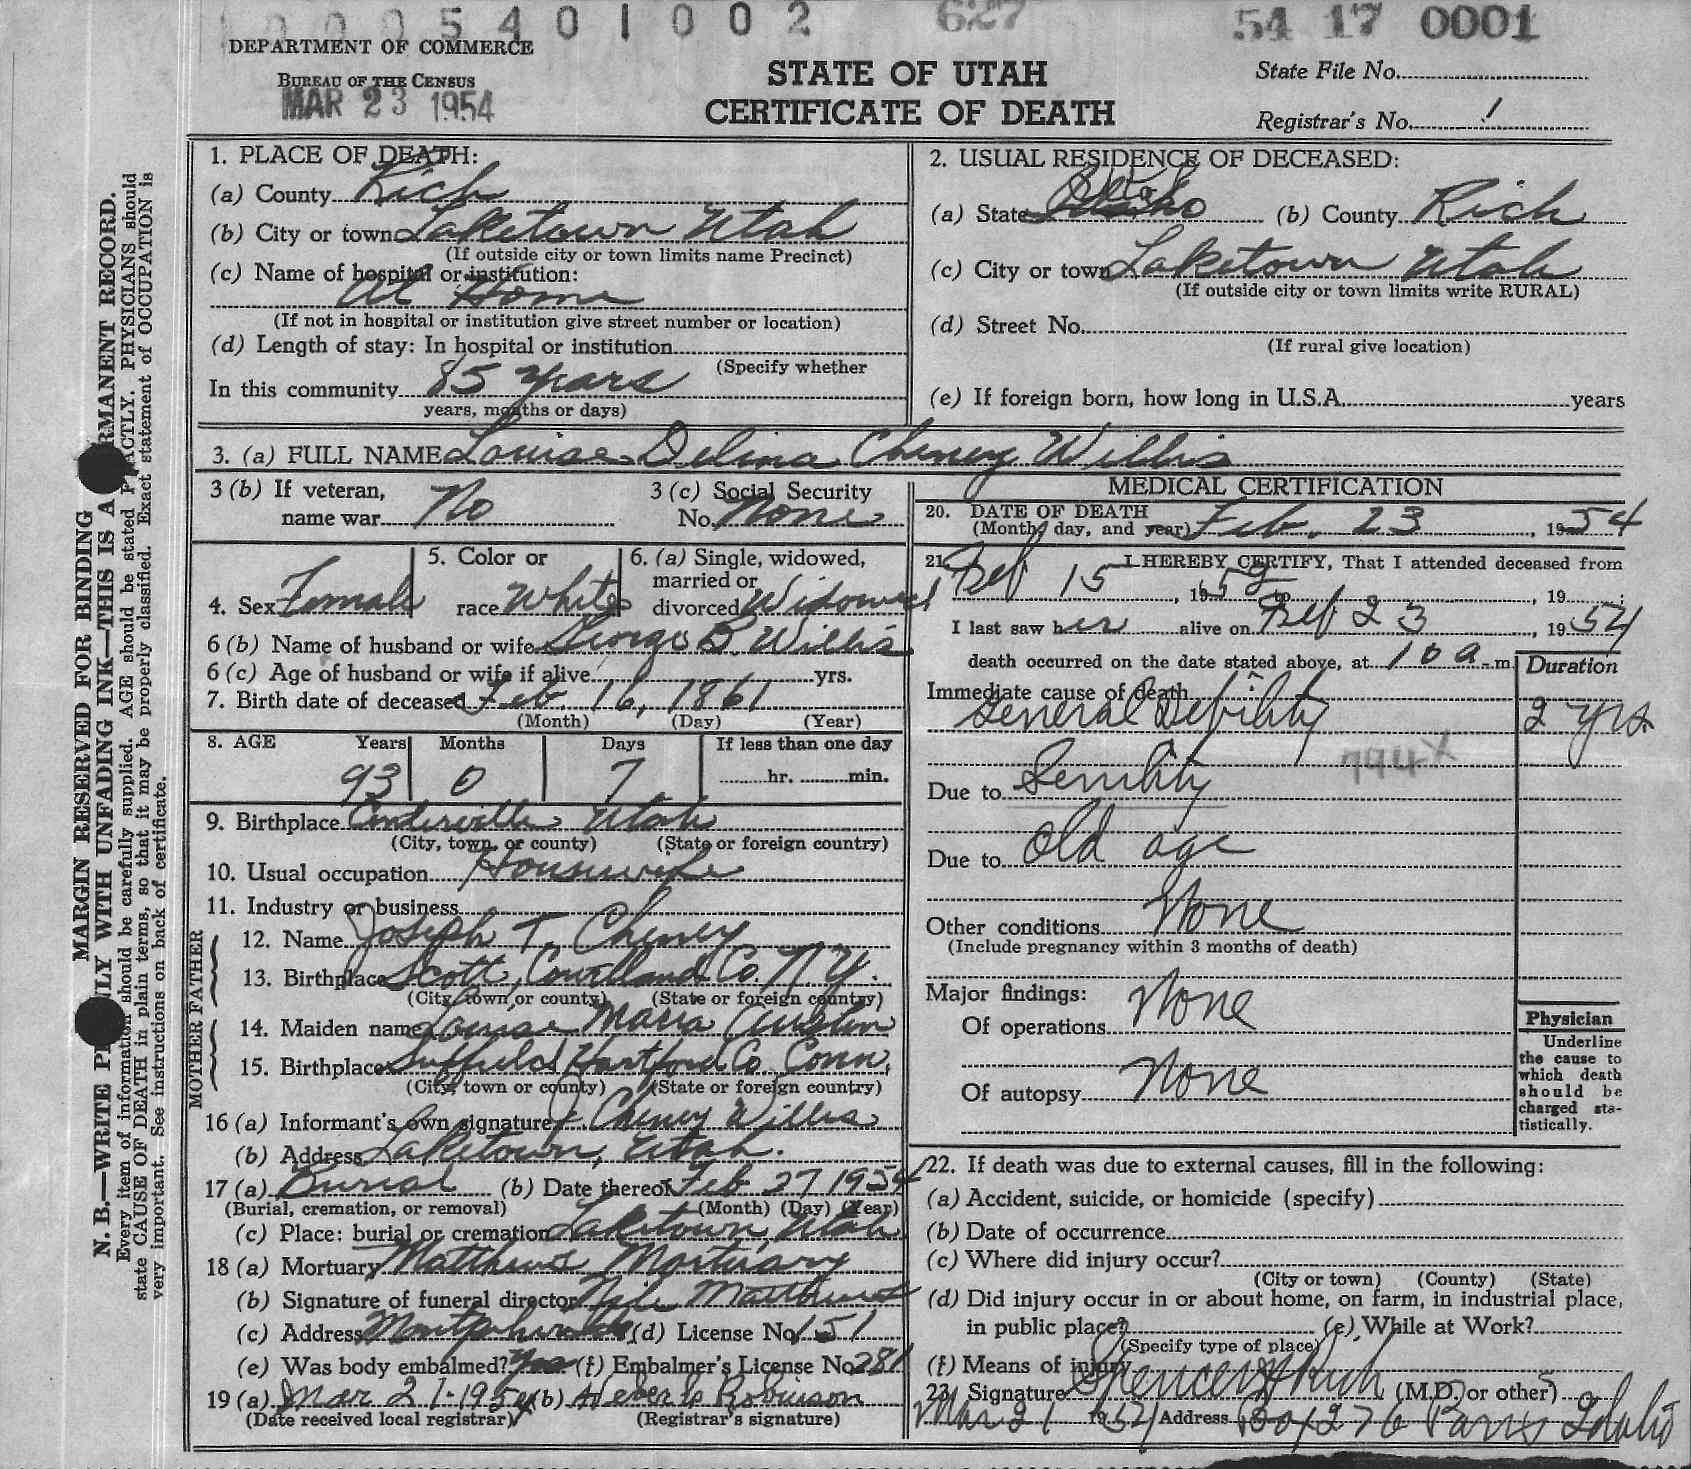 0 0 0 5 4 0 1 0 0 2 627 54 17 0001
DEPARTMENT OF COMMERCE
BUREAU OF THE CENSUS
MAR 23 1954
STATE OF UTAH
CERTIFICATE OF DEATH
State File No.
Registrar's No. 1
MARGIN RESERVED FOR BINDING
N. B.—WRITE PLAINLY WITH UNFADING INK—THIS IS A PERMANENT RECORD.
Every item of information should be carefully supplied. AGE should be stated EXACTLY. PHYSICIANS should
state CAUSE OF DEATH in plain terms, so that it may be properly classified. Exact statement of OCCUPATION is
very important. See instructions on back of certificate.
1. PLACE OF DEATH:
(a) County Rich
(b) City or town Laketown Utah
(If outside city or town limits name Precinct)
(c) Name of hospital or institution:
At Home
(If not in hospital or institution give street number or location)
(d) Length of stay: In hospital or institution
(Specify whether
In this community 85 years
years, months or days)
2. USUAL RESIDENCE OF DECEASED:
(a) State Idaho Utah (b) County Rich
(c) City or town Laketown Utah
(If outside city or town limits write RURAL)
(d) Street No.
(If rural give location)
(e) If foreign born, how long in U.S.A. years
3. (a) FULL NAME Louise Delina Cheney Willis
3 (b) If veteran,
name war No
3 (c) Social Security
No. None
4. Sex Female
5. Color or
race White
6. (a) Single, widowed,
married or
divorced Widowed
6 (b) Name of husband or wife George B. Willis
6 (c) Age of husband or wife if alive yrs.
7. Birth date of deceased Feb. 16, 1861
(Month) (Day) (Year)
8. AGE Years Months Days If less than one day
93 0 7 hr. min.
9. Birthplace Centerville Utah
(City, town, or county) (State or foreign country)
10. Usual occupation Housewife
11. Industry or business
FATHER
12. Name Joseph T. Cheney
13. Birthplace Scott, Courtland Co. N.Y.
(City, town or county) (State or foreign country)
MOTHER
14. Maiden name Louisa Maria Austin
15. Birthplace Suffield Hartford Co Conn,
(City, town or county) (State or foreign country)
16 (a) Informant's own signature J. Cheney Willis
(b) Address Laketown, Utah.
17 (a) Burial (b) Date thereof Feb 27 1954
(Burial, cremation, or removal) (Month) (Day) (Year)
(c) Place: burial or cremation Laketown, Utah
18 (a) Mortuary Matthews Mortuary
(b) Signature of funeral director Matthews
(c) Address Montpelier (d) License No. 151
(e) Was body embalmed? Yes (f) Embalmer's License No. 281
19 (a) Mar 21-1954 (b) Robinson
(Date received local registrar) (Registrar's signature)
MEDICAL CERTIFICATION
20. DATE OF DEATH
(Month, day, and year) Feb. 23, 1954
21. I HEREBY CERTIFY, That I attended deceased from
Feb 15, 1952 to Feb 23, 19
I last saw her alive on, 1954
death occurred on the date stated above, at 10 a. m.
Duration
Immediate cause of death:
General Debility 2 yrs
794X
Due to Senility
Due to Old age
Other conditions None
(Include pregnancy within 3 months of death)
Major findings:
Of operations None
Of autopsy None
Physician
Underline
the cause to
which death
should be
charged sta-
tistically.
22. If death was due to external causes, fill in the following:
(a) Accident, suicide, or homicide (specify)
(b) Date of occurrence
(c) Where did injury occur?
(City or town) (County) (State)
(d) Did injury occur in or about home, on farm, in industrial place,
in public place? (e) While at Work?
(Specify type of place)
(f) Means of injury
23. Signature Spencer H Rich (M.D. or other)
Mar 21 1954 Address Box 276 Paris Idaho